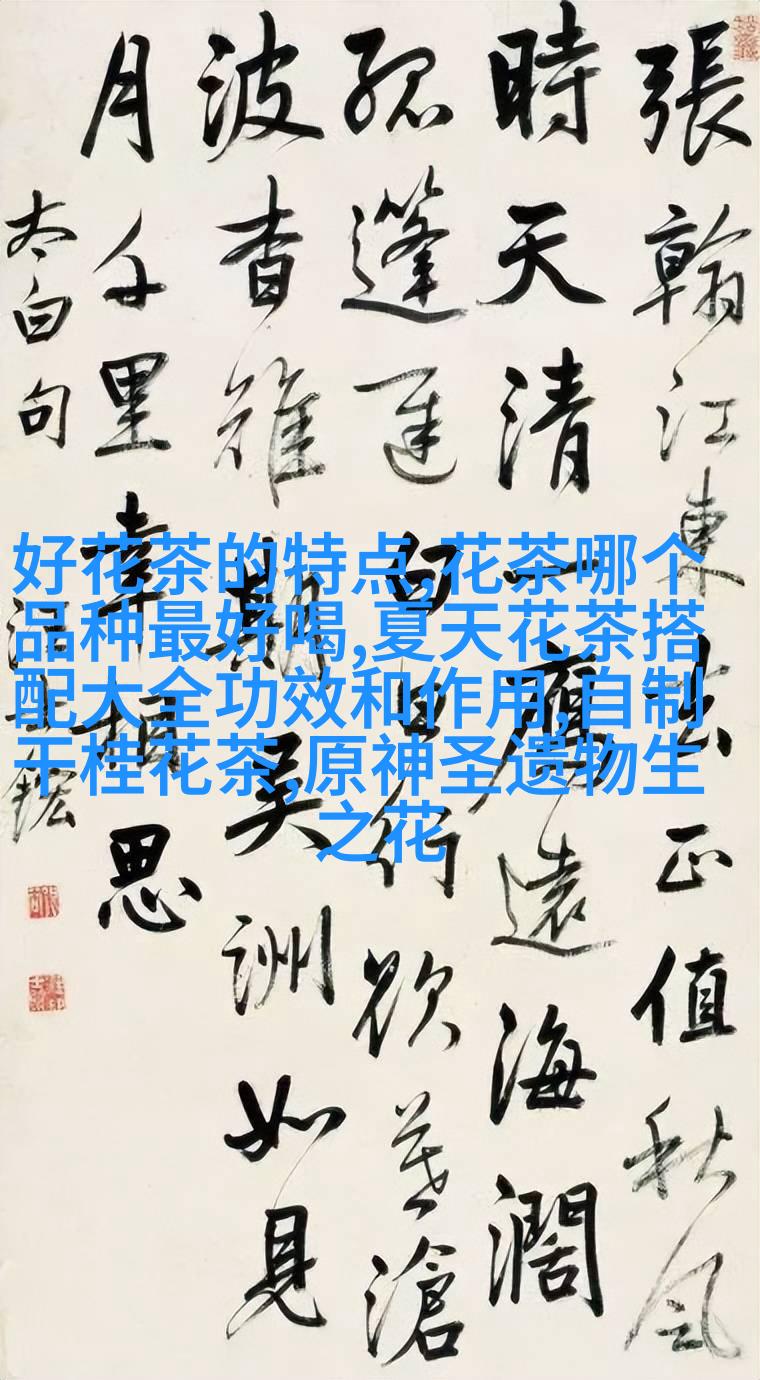 張翰江東去正值秋風
時天清一雁遠海濶
孤蓬遲白日行欲暮滄
波杳難期吳洲如見
月千里幸相思
太白句
好花茶的特点,花茶哪个
品种最好喝,夏天花茶搭
配大全功效和作用,自制
干桂花茶,原神圣遗物生
之花